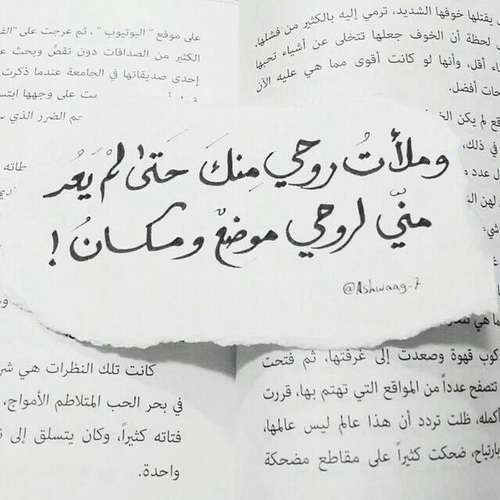 يقتلها خوفها الشديد، ترمي إليه بالكثير من فشلها،
لحظة أن الخوف جعلها تتخلى عن أشياء تحبها
أقل، وأنها لو كانت أقوى مما هي عليه الآن
أفضل.
لم يكن
في ذلك،
عدد
لهن
على موقع "اليوتيوب" ، ثم عرجت على
الكثير من الصداقات دون تقصٍّ وبحث
إحدى صديقاتها في الجامعة عندما ذكرت
على وجهها
الضرر الذي
وملأتُ روحي مِنكَ حَتىٰ لمْ يَعُد
منّي لروحي موضعٌ ومكانُ !
@Ashwaag-7
كوب قهوة وصعدت إلى غرفتها، ثم فتحت
تتصفح عدداً من المواقع التي تهتم بها، قررت
أكمله، ظلت تردد أن هذا عالم ليس عالمها،
بارتياح، ضحكت كثيراً على مقاطع مضحكة
كانت تلك النظرات هي
في بحر الحب المتلاطم الأمواج،
فتاته كثيراً، وكان يتسلق إلى
واحدة.